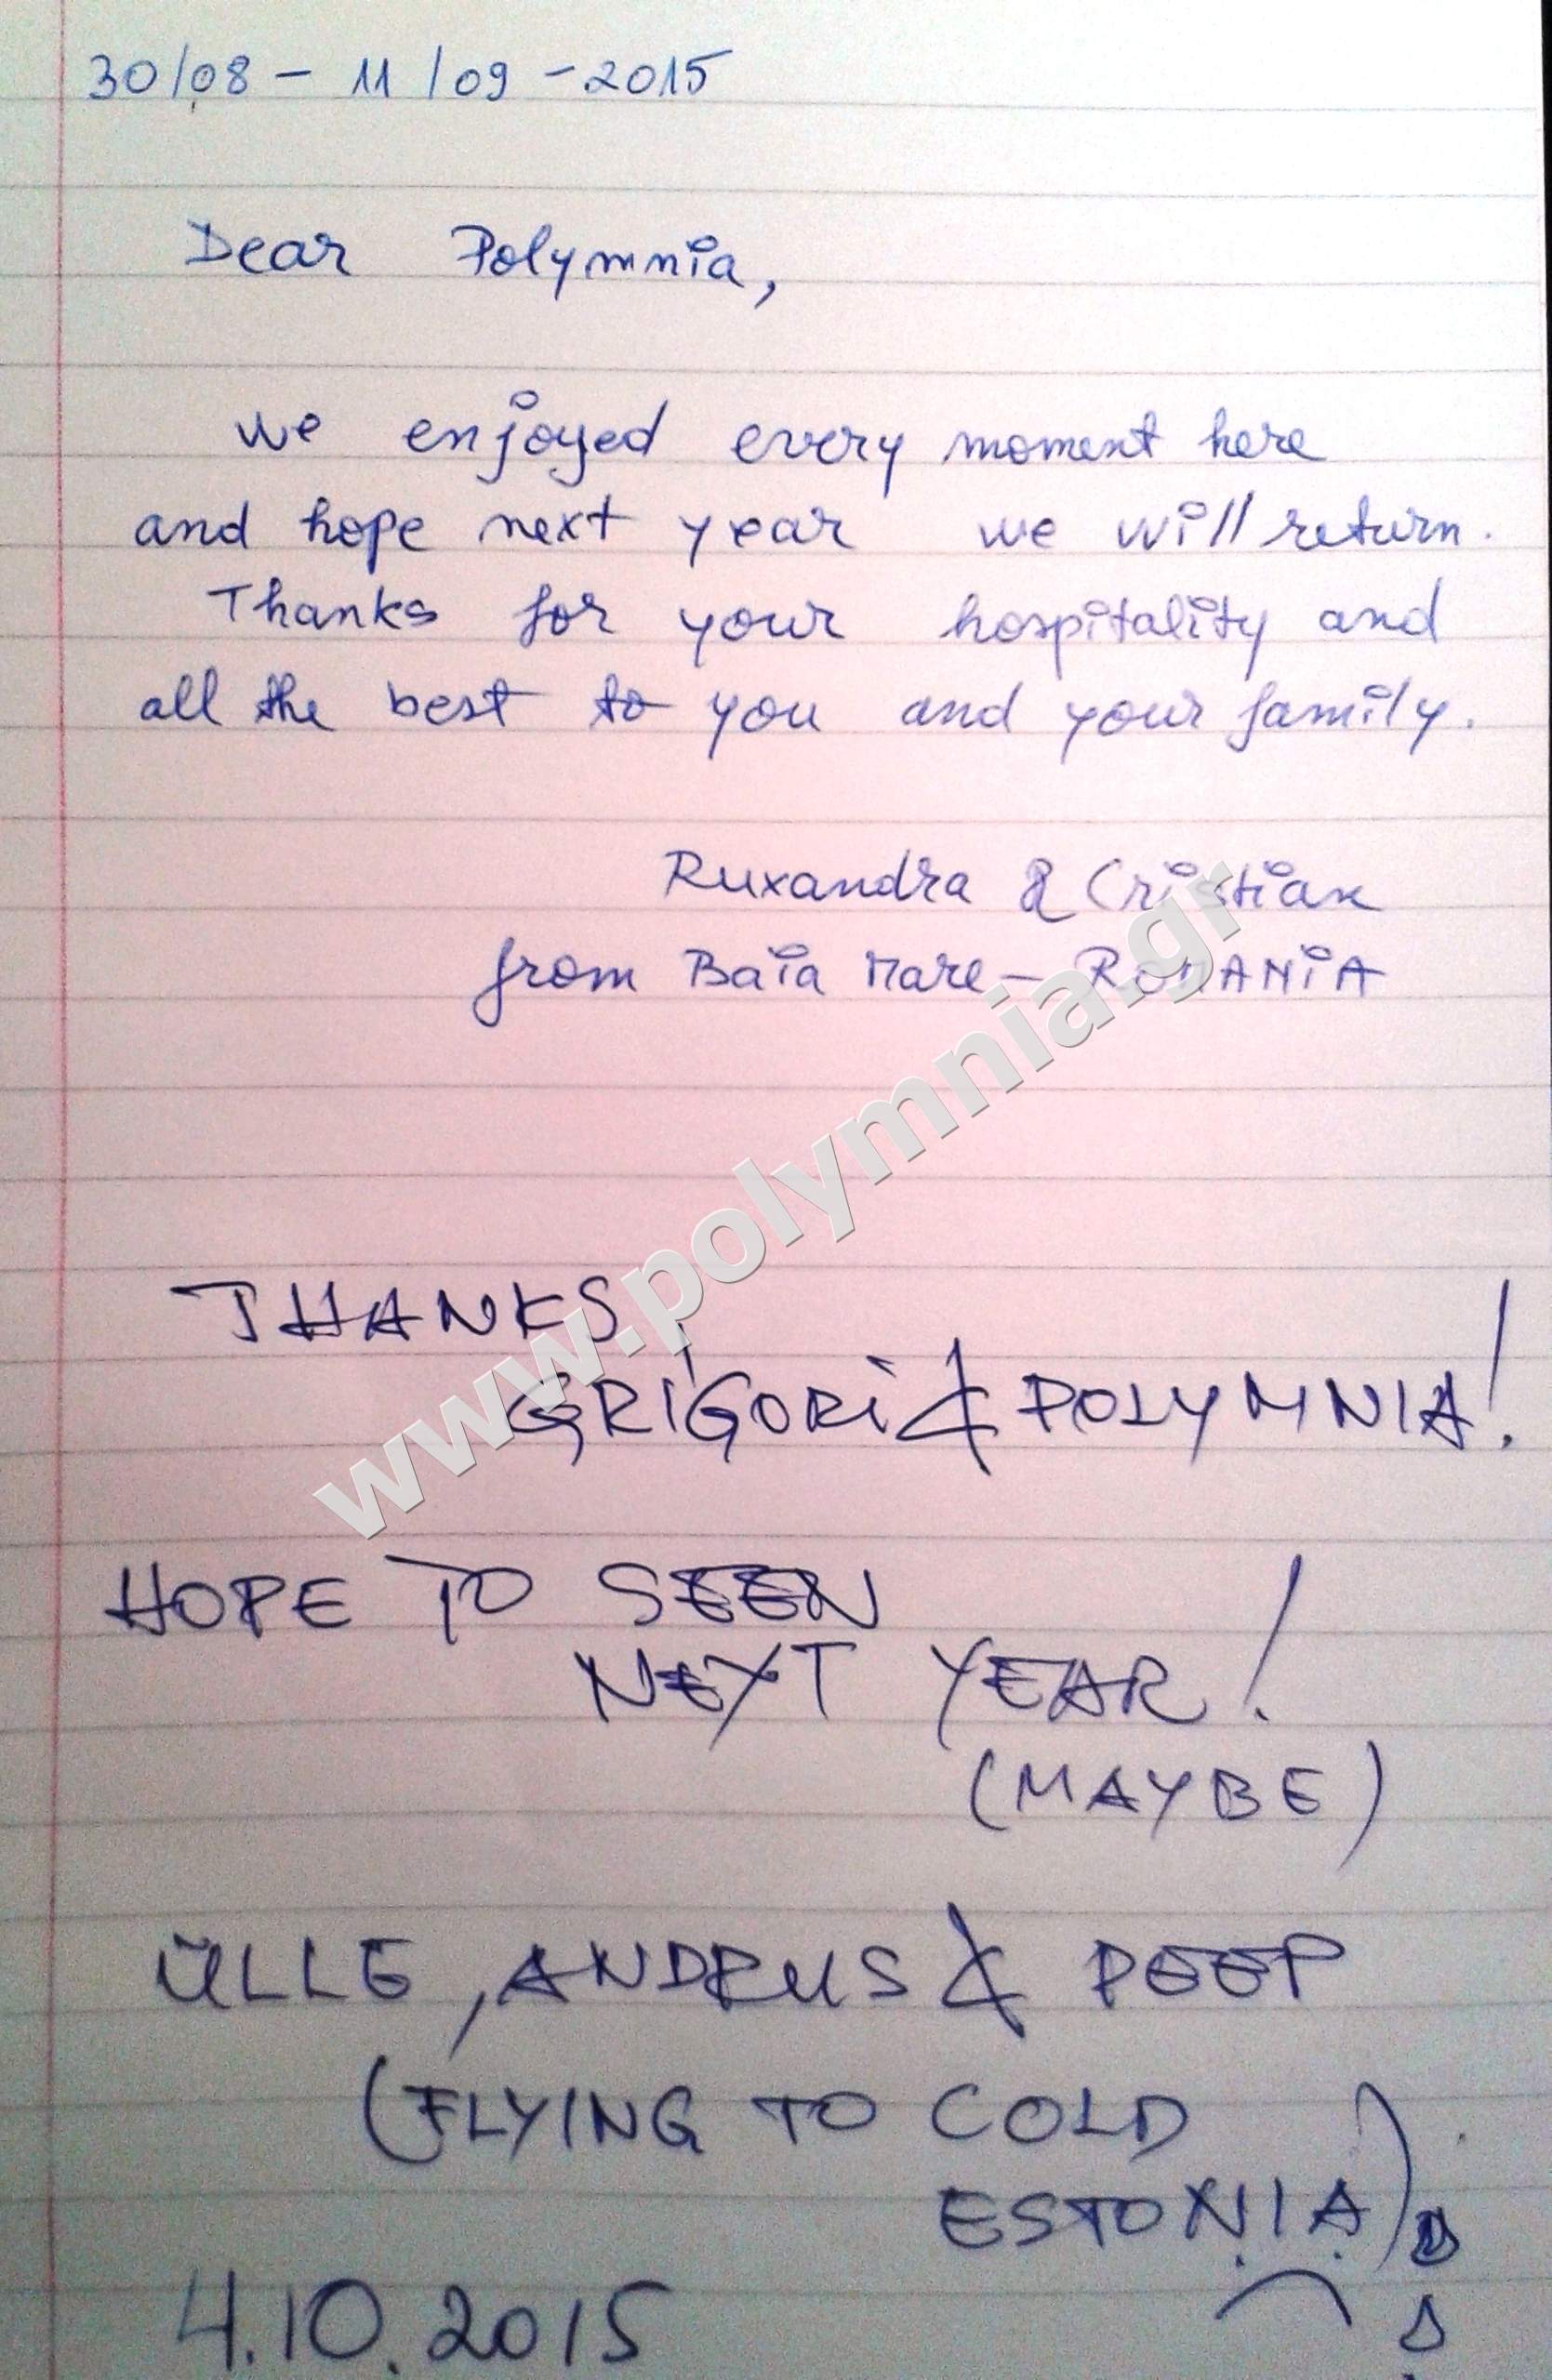 30/08 - 11/09 - 2015
Dear Polymnia,
we enjoyed every moment here
and hope next year we will return.
Thanks for your hospitality and
all the best to you and your family.
Ruxandra & Cristian
from Baia Mare - ROMANIA
www.polymnia.gr
THANKS,
GRIGORI & POLYMNIA!
HOPE TO SEEN
NEXT YEAR!
(MAYBE)
ÜLLE, ANDRUS & PEEP
(FLYING TO COLD
ESTONIA)
4.10.2015